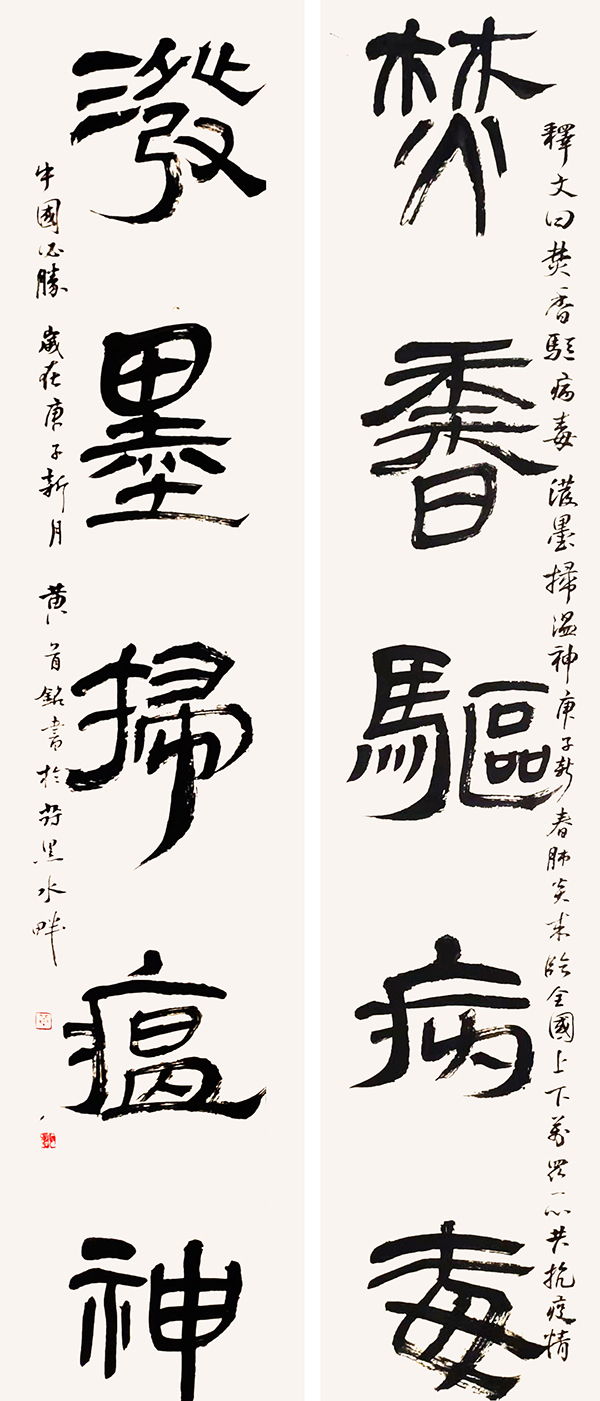 釋文曰焚香駈病毒潑墨掃温神庚子新春肺炎來臨全國上下萬眾一心共抗疫情
焚香驅病毒
潑墨掃瘟神
中國必勝 歲在庚子新月 黄首銘書於黑水畔